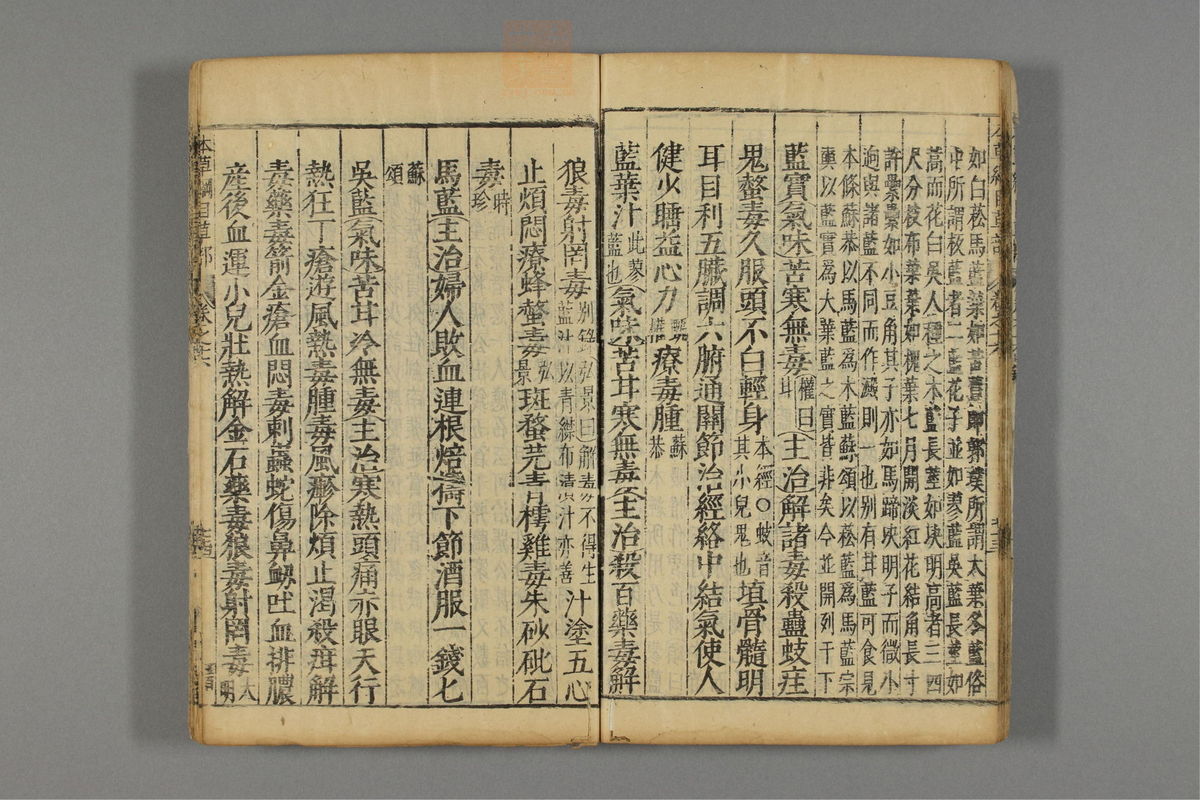 如白菘馬藍葉如苦蕒即郭璞所謂大葉冬藍俗
中所謂板藍者二藍花子並如蓼藍吳藍長莖如
蒿而花白吳人種之木藍長莖如決明高者三四
尺分枝布葉葉如槐葉七月開淡紅花結角長寸
許纍纍如小豆角其子亦如馬蹄決明子而微小
迥與諸藍不同而作澱則一也別有甘藍可食見
本條蘇恭以馬藍爲木藍蘇頌以菘藍爲馬藍宗
奭以藍實爲大葉藍之實皆非矣今並開列于下
藍實氣味苦寒無毒權曰甘主治解諸毒殺蠱蚑疰
鬼螫毒久服頭不白輕身本經○蚑音其小兒鬼也填骨髓明
耳目利五臟調六腑通關節治經絡中結氣使人
健少睡益心力甄權療毒腫蘇恭
藍葉汁此蓼藍也氣味苦甘寒無毒主治殺百藥毒解
狼毒射罔毒別錄弘景曰解毒不得生藍汁以青緜布漬汁亦善汁塗五心
止煩悶療蜂螫毒弘景斑蝥芫青樗雞毒朱砂砒石
毒時珍
馬藍主治婦人敗血連根焙擣下篩酒服一錢匕
蘇頌
吳藍氣味苦甘冷無毒主治寒熱頭痛赤眼天行
熱狂丁瘡遊風熱毒腫毒風癮除煩止渴殺疳解
毒藥毒箭金瘡血悶毒刺蟲蛇傷鼻衄吐血排膿
產後血運小兒壯熱解金石藥毒狼毒射罔毒大明
本草綱目草部